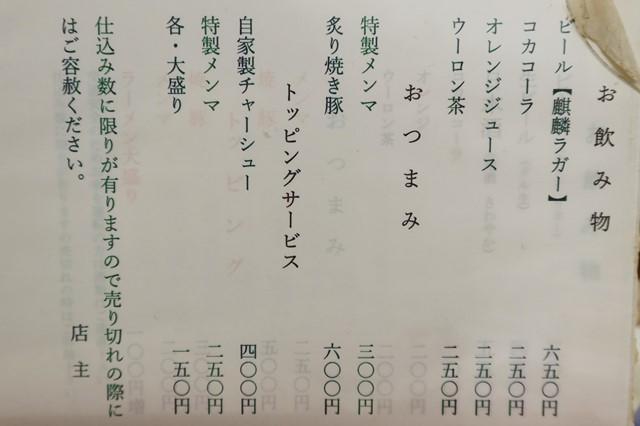 お飲み物
ビール【麒麟ラガー】 六五〇円
コカコーラ 二五〇円
オレンジジュース 二五〇円
ウーロン茶 二五〇円
おつまみ
特製メンマ 三〇〇円
炙り焼き豚 六〇〇円
トッピングサービス
自家製チャーシュー 四〇〇円
特製メンマ 二五〇円
各・大盛り 一五〇円
仕込み数に限りが有りますので売り切れの際に
はご容赦ください。
店主